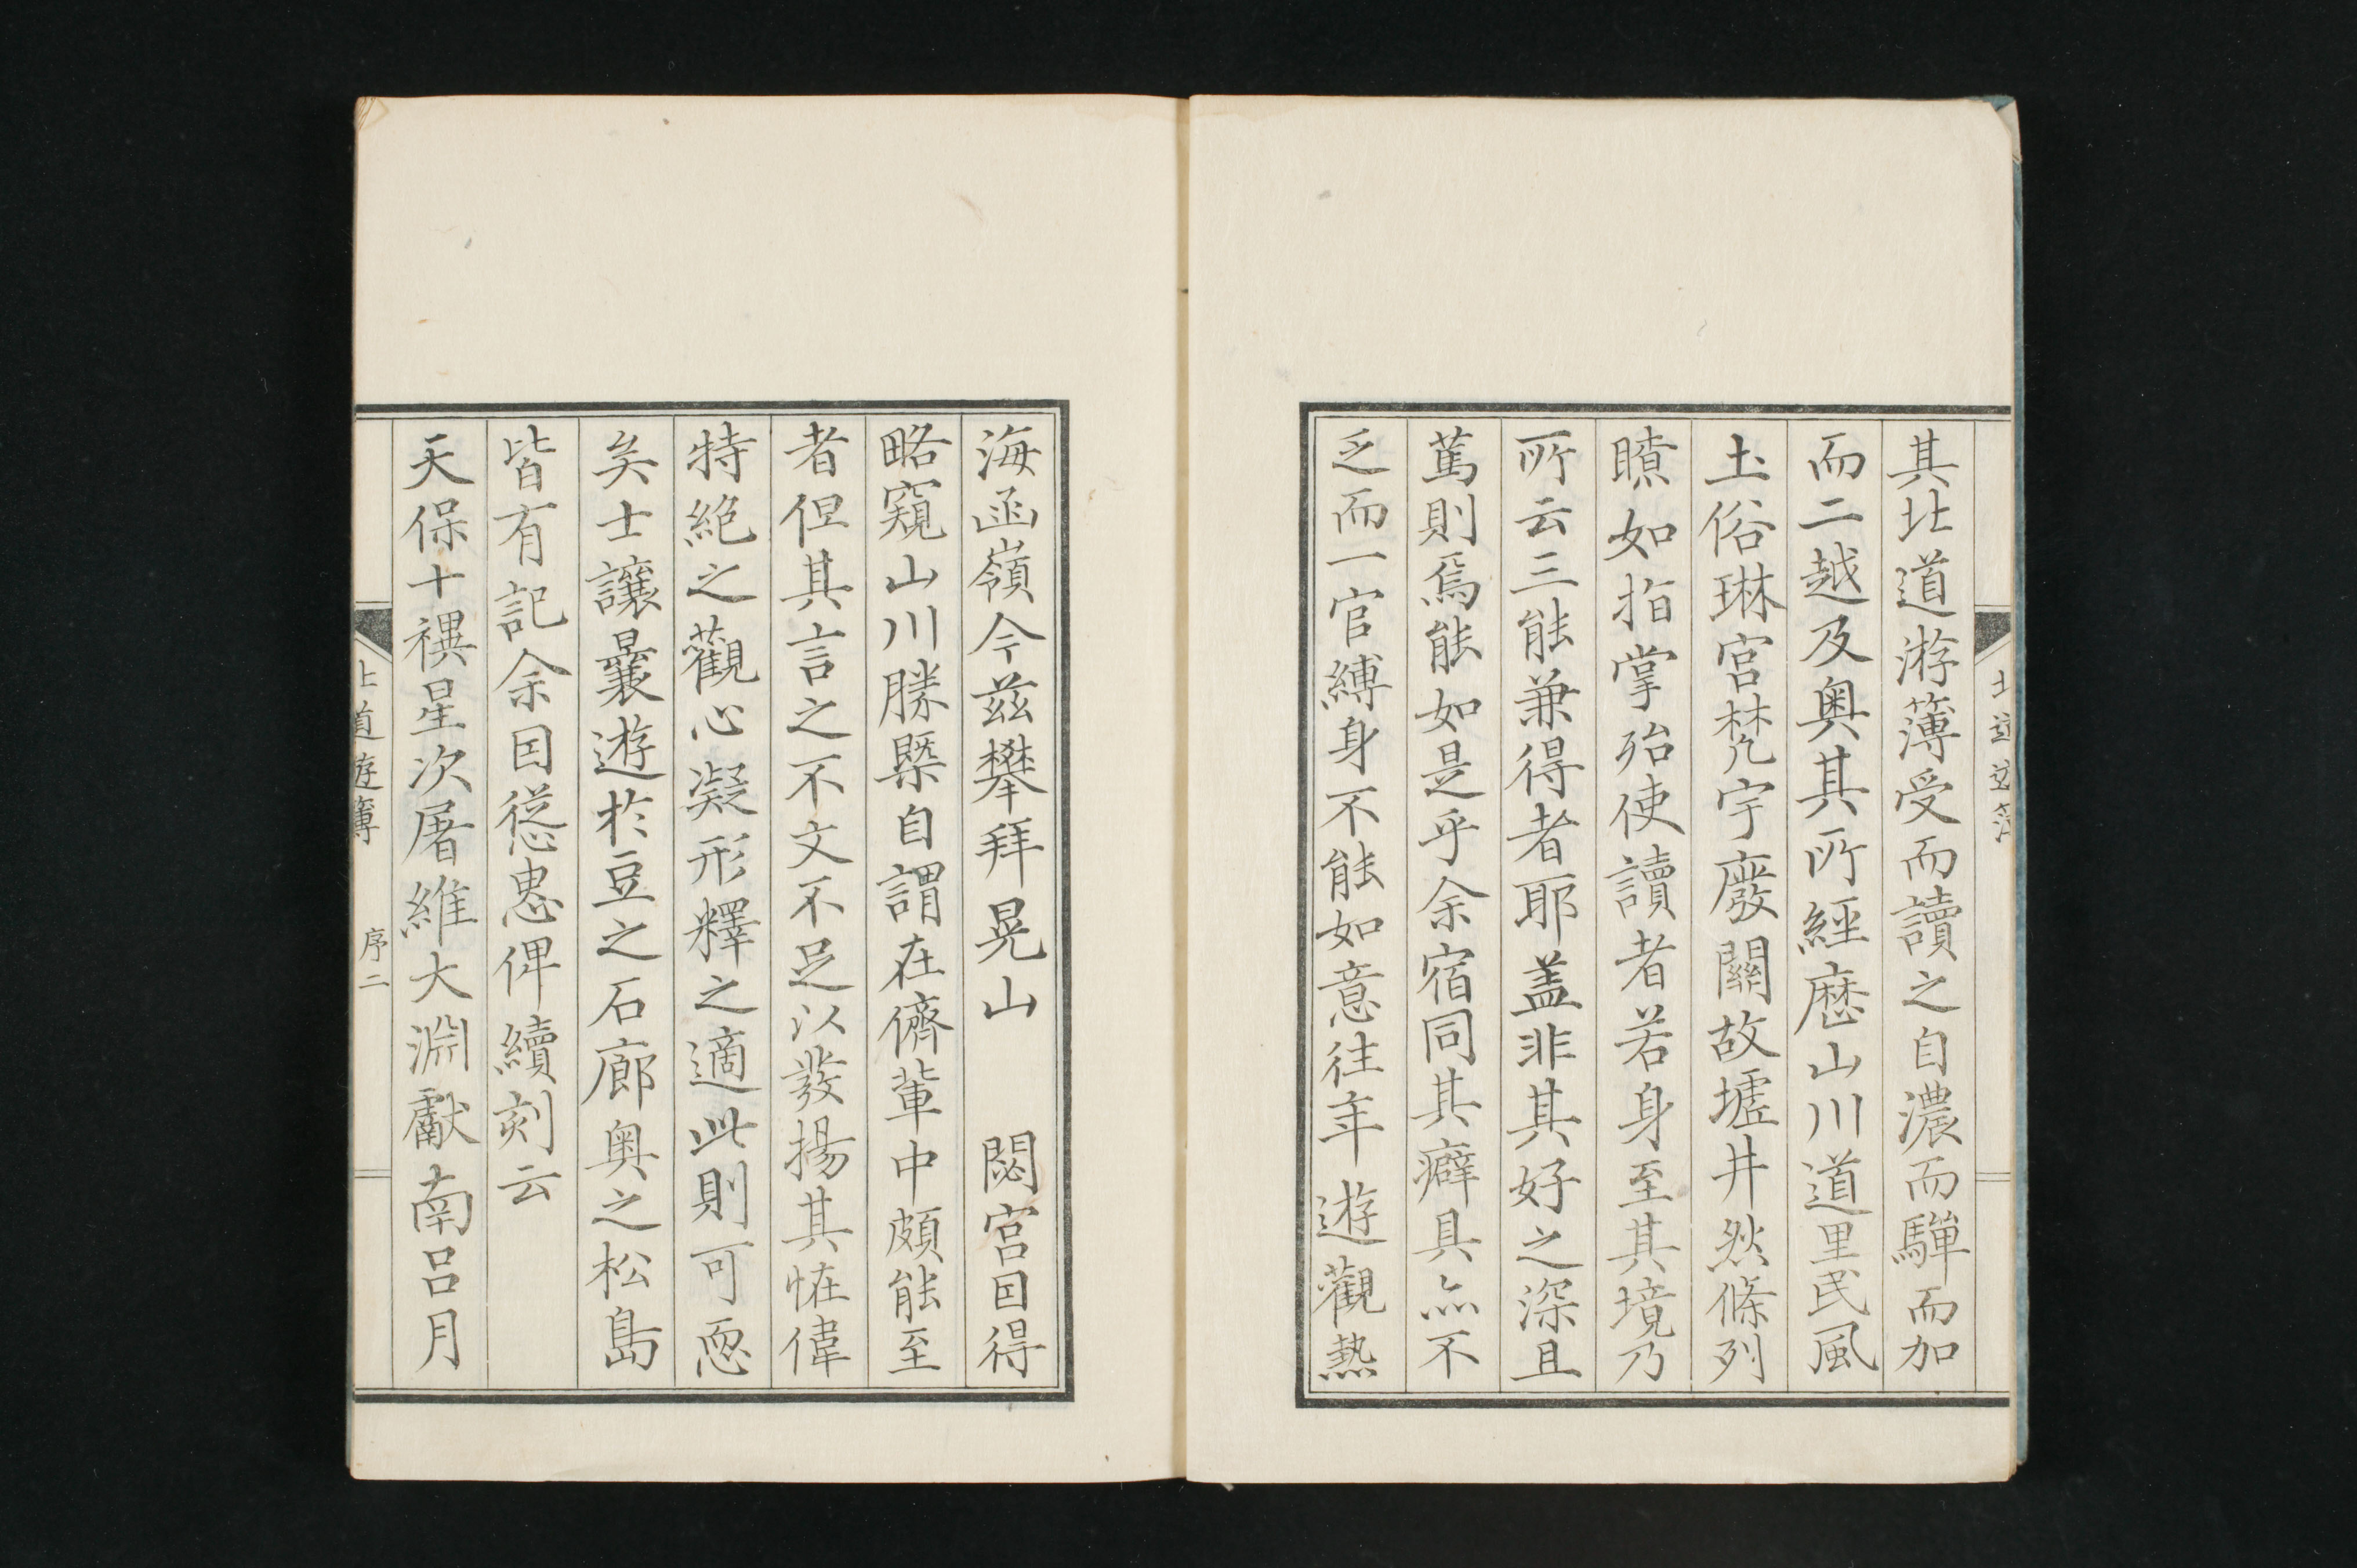 其北道游簿受而讀之自濃而驒而加
而二越及奧其所經歷山川道里民風
土俗琳宮梵宇廢關故墟井然條列
瞭如指掌殆使讀者若身至其境乃
所云三能兼得者耶盖非其好之深且
篤則焉能如是乎余宿同其癖具亦不
乏而一官縛身不能如意往年遊觀熱
海函嶺今茲攀拜晃山　閟宮因得
略窺山川勝槩自謂在儕輩中頗能至
者但其言之不文不足以發揚其恠偉
特絕之觀心凝形釋之適此則可恧
矣士讓曩遊於豆之石廊奧之松島
皆有記余因慫恿俾續刻云
天保十禩星次屠維大淵獻南呂月
北道遊簿　序二